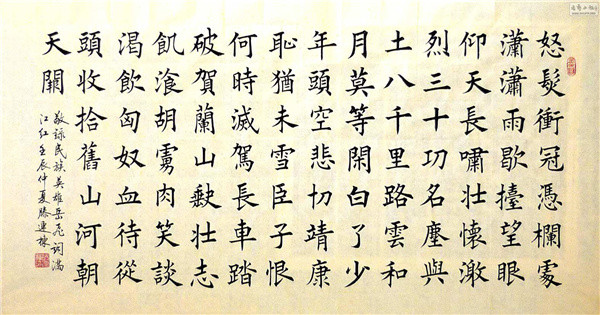 怒髮衝冠憑欄處
瀟瀟雨歇擡望眼
仰天長嘯壯懷激
烈三十功名塵與
土八千里路雲和
月莫等閑白了少
年頭空悲切靖康
恥猶未雪臣子恨
何時滅駕長車踏
破賀蘭山缺壯志
飢飡胡虜肉笑談
渴飲匈奴血待從
頭收拾舊山河朝
天闕
敬詠民族英雄岳飛詞滿
江紅壬辰仲夏滕連棟